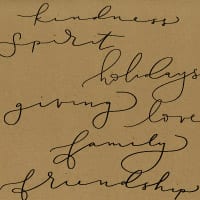 kindness
spirit
holidays
giving love
family
friendship